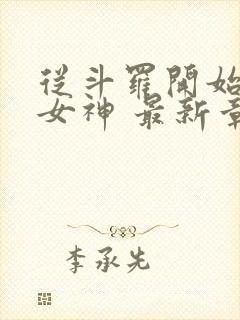 從斗羅開始
女神 最新章
李承先